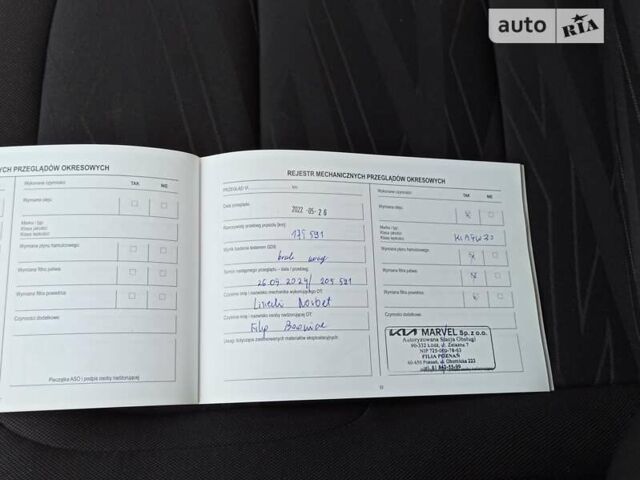 auto RIA
YCH PRZEGLĄDÓW OKRESOWYCH
Wykonane czynności: TAK NIE
Wymiana oleju:
Marka i typ:
Klasa jakości:
Klasa lepkości:
Wymiana płynu hamulcowego:
Wymiana filtra paliwa:
Wymiana filtra powietrza:
Czynności dodatkowe:
Pieczątka ASO i podpis osoby nadzorującej
REJESTR MECHANICZNYCH PRZEGLĄDÓW OKRESOWYCH
PRZEGLĄD VI km
Data przeglądu:
2022 -05- 26
Rzeczywisty przebieg pojazdu [km]:
135 591
Wynik badania testerem GDS:
brak uwag
Termin następnego przeglądu - data / przebieg:
205 591
Czytelne imię i nazwisko mechanika wykonującego OT:
Czytelne imię i nazwisko osoby nadzorującej OT:
Filip
Uwagi dotyczące zastosowanych materiałów eksploatacyjnych:
Wykonane czynności: TAK NIE
Wymiana oleju:
Marka i typ:
Klasa jakości:
Klasa lepkości:
Wymiana płynu hamulcowego:
Wymiana filtra paliwa:
Wymiana filtra powietrza:
Czynności dodatkowe:
KIA MARVEL Sp. z o.o.
Autoryzowana Stacja Obsługi
90-332 Łódź, ul. Żelazna 7
FILIA POZNAŃ
Poznań, ul. Obornicka 223